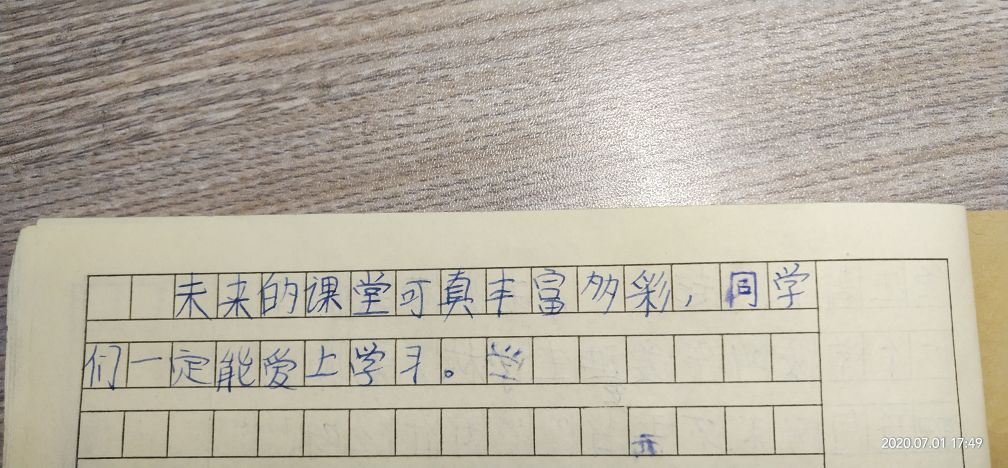 未来的课堂可真丰富多彩，同学
们一定能爱上学习。
2020.07.01 17:49